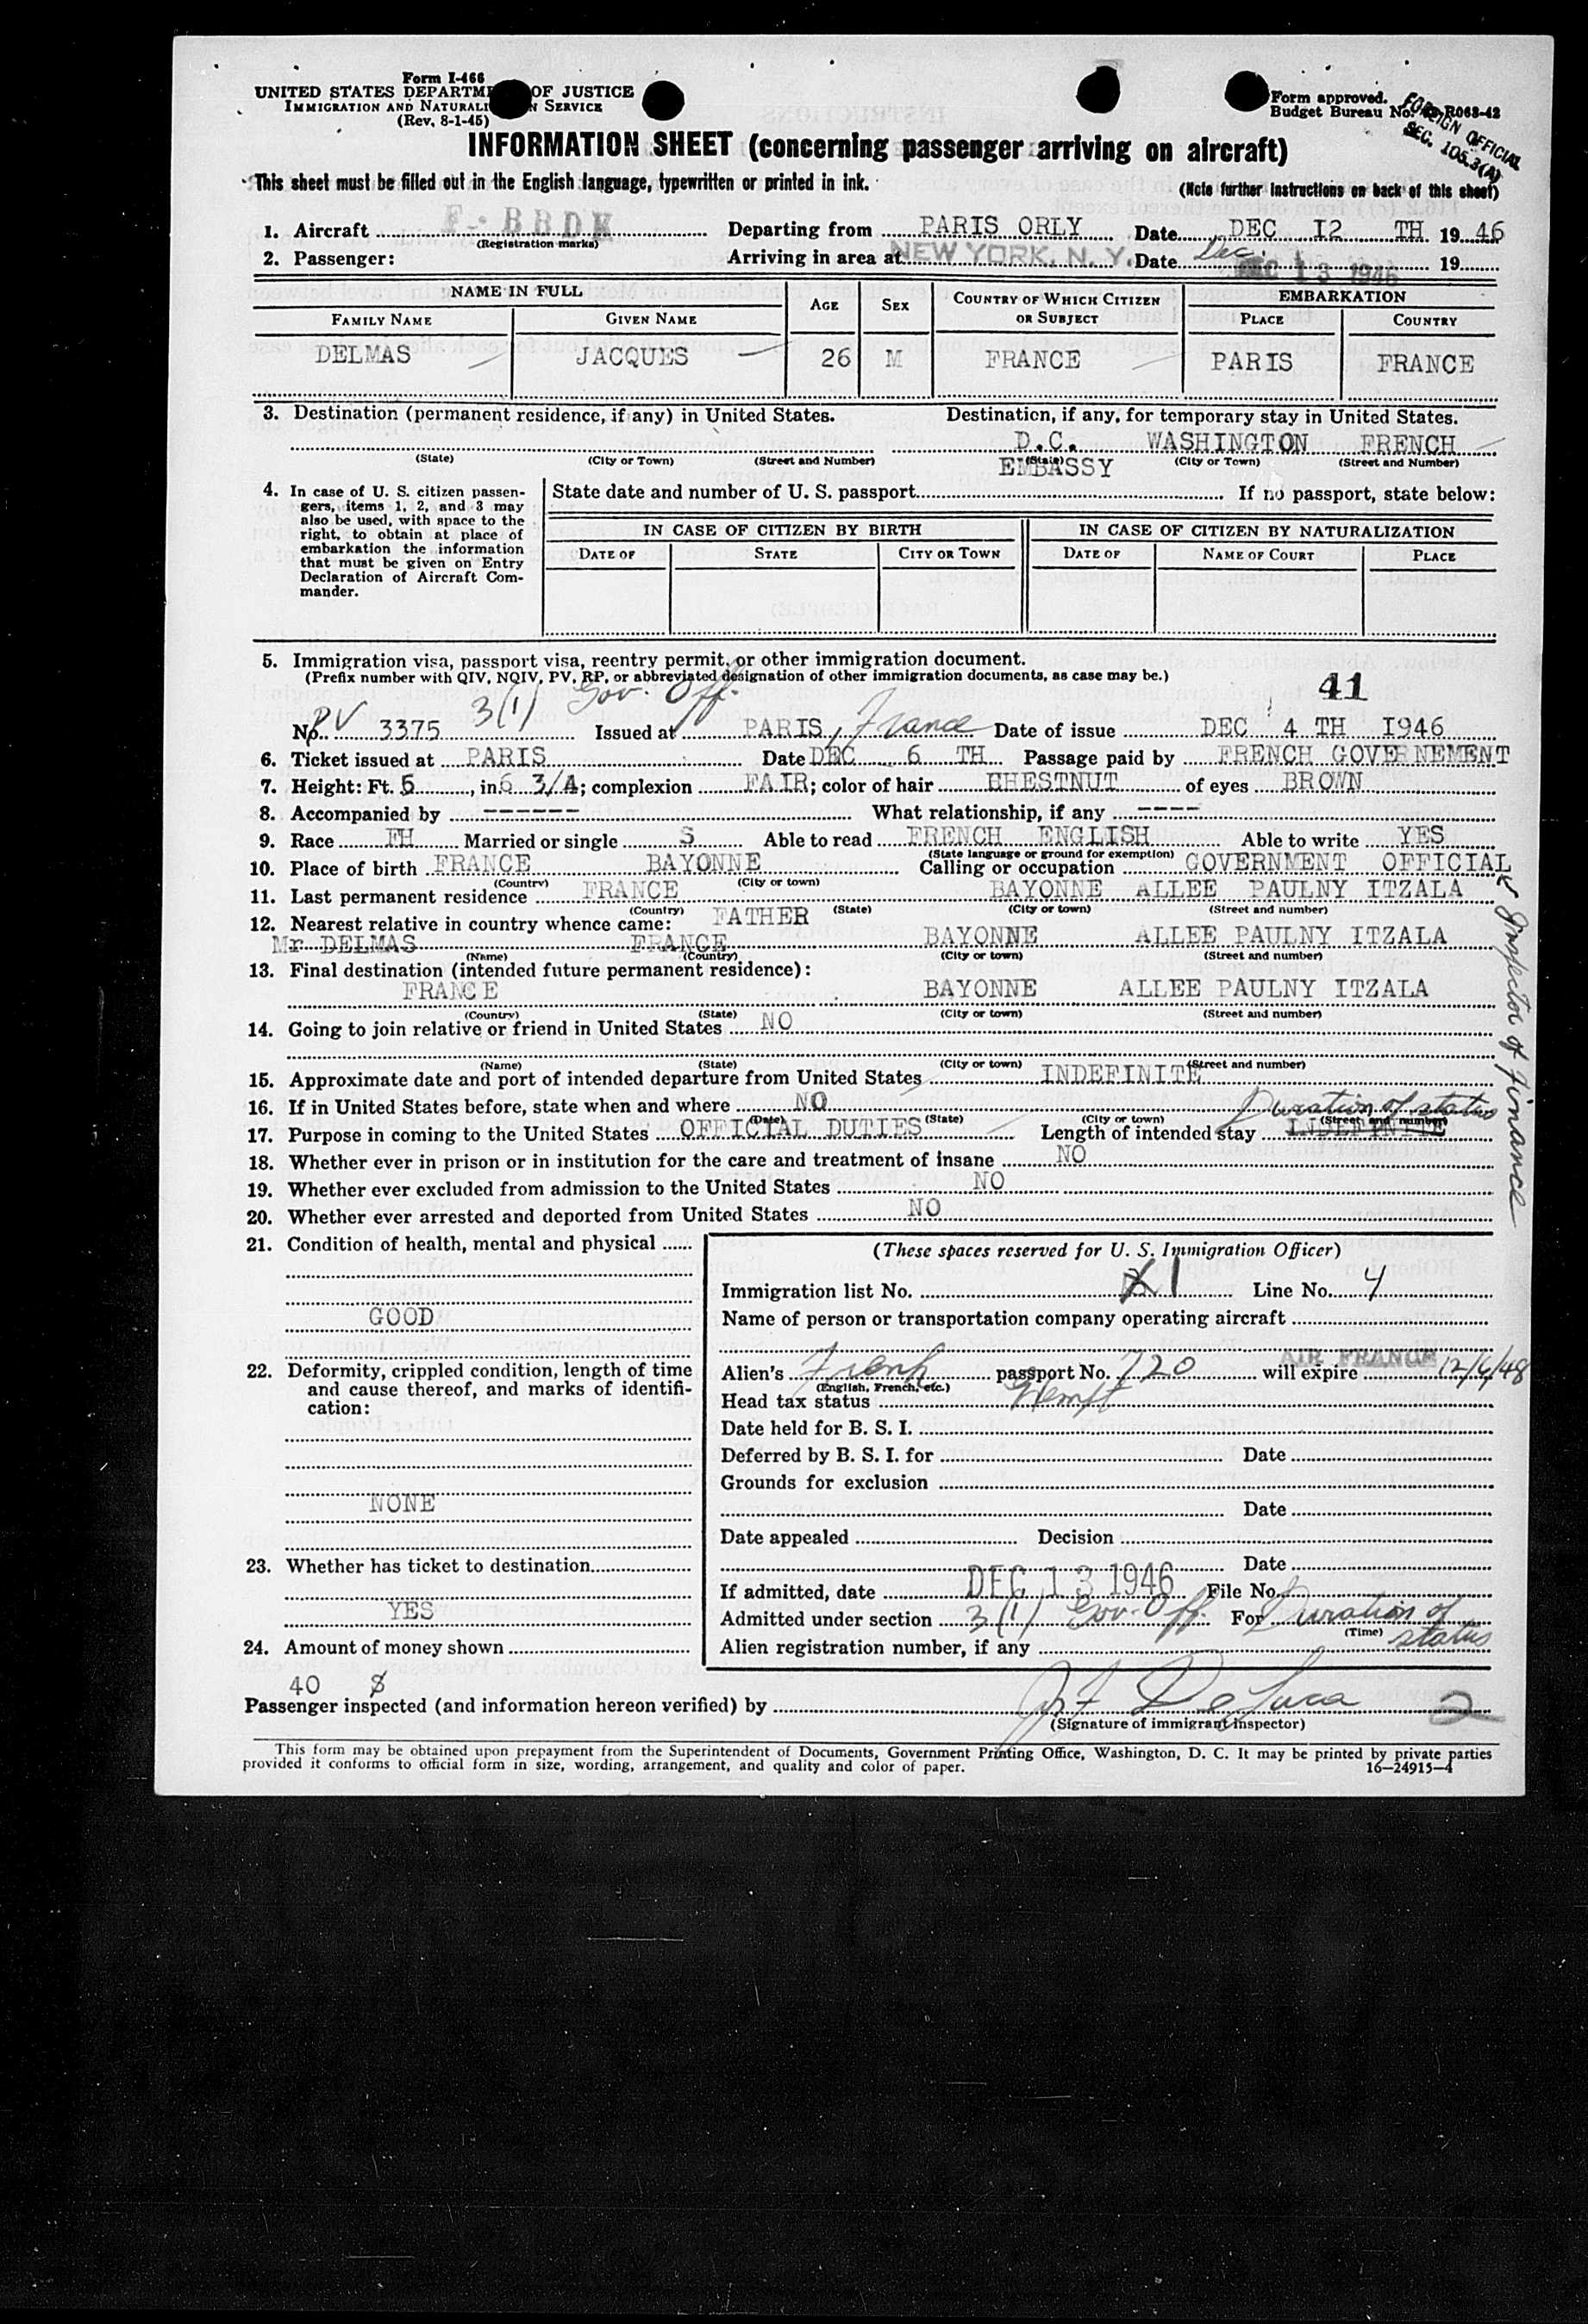 Form I-466
UNITED STATES DEPARTME OF JUSTICE
IMMIGRATION AND NATURALI N SERVICE
(Rev. 8-1-45)
Form approved.
Budget Bureau No. R063-42
FOREIGN OFFICIAL
SEC. 105.3(A)
INFORMATION SHEET (concerning passenger arriving on aircraft)
This sheet must be filled out in the English language, typewritten or printed in ink.
(Note further instructions on back of this sheet)
1. Aircraft F-BBDK Departing from PARIS ORLY Date DEC 12 TH 1946
(Registration marks)
2. Passenger: Arriving in area at NEW YORK, N. Y. Date Dec. DEC 13 1946 19
NAME IN FULL AGE SEX COUNTRY OF WHICH CITIZEN OR SUBJECT EMBARKATION
FAMILY NAME GIVEN NAME PLACE COUNTRY
DELMAS JACQUES 26 M FRANCE PARIS FRANCE
3. Destination (permanent residence, if any) in United States. Destination, if any, for temporary stay in United States.
D.C. WASHINGTON FRENCH
(State) (City or Town) (Street and Number) (State) (City or Town) (Street and Number)
EMBASSY
4. In case of U. S. citizen passengers, items 1, 2, and 3 may also be used, with space to the right, to obtain at place of embarkation the information that must be given on Entry Declaration of Aircraft Commander.
State date and number of U. S. passport If no passport, state below:
IN CASE OF CITIZEN BY BIRTH IN CASE OF CITIZEN BY NATURALIZATION
DATE OF STATE CITY OR TOWN DATE OF NAME OF COURT PLACE
5. Immigration visa, passport visa, reentry permit, or other immigration document.
(Prefix number with QIV, NQIV, PV, RP, or abbreviated designation of other immigration documents, as case may be.)
3(1) Gov. Off. 41
No. PV 3375 Issued at PARIS, France Date of issue DEC 4 TH 1946
6. Ticket issued at PARIS Date DEC 6 TH Passage paid by FRENCH GOVERNEMENT
7. Height: Ft. 5, in 6 3/4; complexion FAIR; color of hair CHESTNUT of eyes BROWN
8. Accompanied by ------ What relationship, if any ----
9. Race FH Married or single S Able to read FRENCH ENGLISH Able to write YES
(State language or ground for exemption)
10. Place of birth FRANCE BAYONNE Calling or occupation GOVERNMENT OFFICIAL
(Country) (City or town)
Inspector of Finance
11. Last permanent residence FRANCE BAYONNE ALLEE PAULNY ITZALA
(Country) (State) (City or town) (Street and number)
12. Nearest relative in country whence came: FATHER
Mr DELMAS FRANCE BAYONNE ALLEE PAULNY ITZALA
(Name) (Country) (City or town) (Street and number)
13. Final destination (intended future permanent residence):
FRANCE BAYONNE ALLEE PAULNY ITZALA
(Country) (State) (City or town) (Street and number)
14. Going to join relative or friend in United States NO
(Name) (State) (City or town) (Street and number)
15. Approximate date and port of intended departure from United States INDEFINITE
16. If in United States before, state when and where NO
(Date) (State) (City or town) (Street and number)
Duration of status
17. Purpose in coming to the United States OFFICIAL DUTIES Length of intended stay INDEFINITE
18. Whether ever in prison or in institution for the care and treatment of insane NO
19. Whether ever excluded from admission to the United States NO
20. Whether ever arrested and deported from United States NO
21. Condition of health, mental and physical
GOOD
22. Deformity, crippled condition, length of time and cause thereof, and marks of identification:
NONE
23. Whether has ticket to destination
YES
24. Amount of money shown
40 $
(These spaces reserved for U. S. Immigration Officer)
Immigration list No. 1 Line No. 4
Name of person or transportation company operating aircraft
AIR FRANCE
Alien's French passport No. 720 will expire 12/6/48
(English, French, etc.)
Head tax status Exempt
Date held for B. S. I.
Deferred by B. S. I. for Date
Grounds for exclusion
Date
Date appealed Decision
Date
If admitted, date DEC 13 1946 File No.
Admitted under section 3(1) Gov. Off. For Duration of status
(Time)
Alien registration number, if any
Passenger inspected (and information hereon verified) by De Luca 2
(Signature of immigrant inspector)
This form may be obtained upon prepayment from the Superintendent of Documents, Government Printing Office, Washington, D. C. It may be printed by private parties
provided it conforms to official form in size, wording, arrangement, and quality and color of paper. 16-24915-4